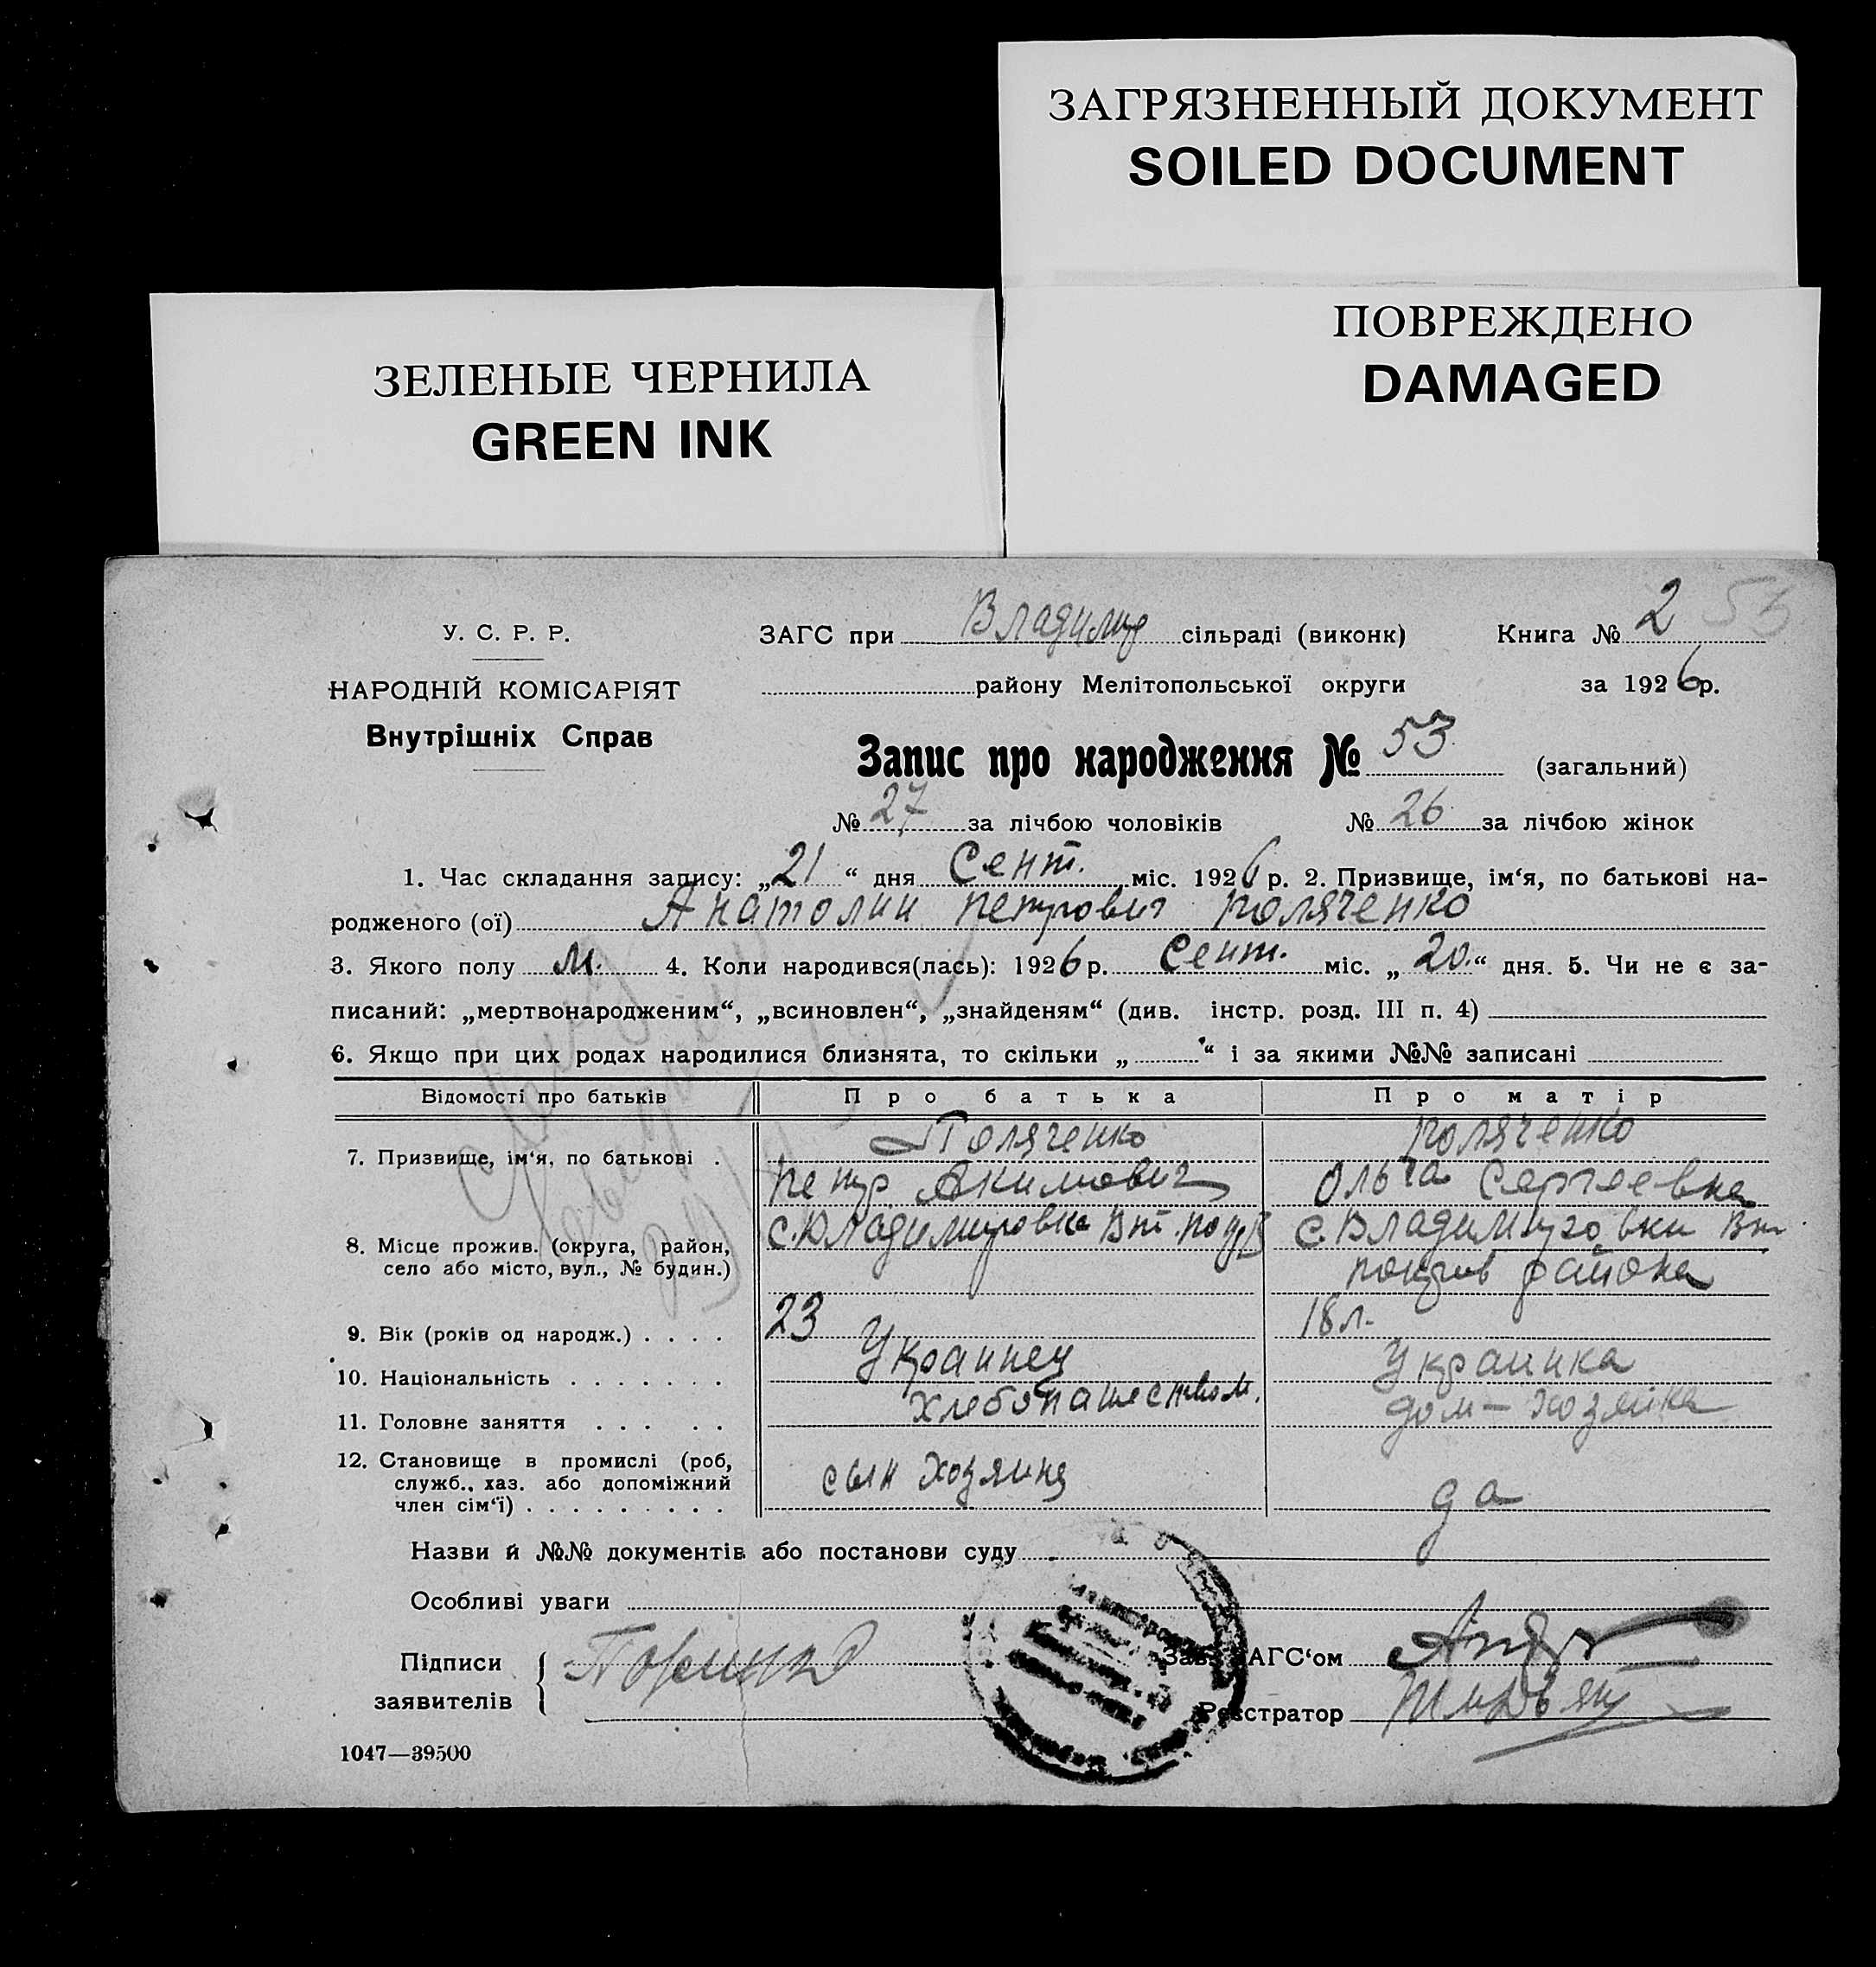 ЗАГРЯЗНЕННЫЙ ДОКУМЕНТ
SOILED DOCUMENT
ПОВРЕЖДЕНО
DAMAGED
ЗЕЛЕНЫЕ ЧЕРНИЛА
GREEN INK
У. С. Р. Р.
НАРОДНІЙ КОМІСАРІЯТ
Внутрішніх Справ
ЗАГС при Владимир сільраді (виконк)
Книга № 2 53
району Мелітопольської округи
за 1926 р.
Запис про народження № 53 (загальний)
№ 27 за лічбою чоловіків № 26 за лічбою жінок
1. Час складання запису: „21“ дня Сент. міс. 1926 р. 2. Призвище, ім‘я, по батькові на-
родженого (ої) Анатолий Петрович Поляченко
3. Якого полу М. 4. Коли народився(лась): 1926 р. Сент. міс. „20.“ дня. 5. Чи не є за-
писаний: „мертвонародженим“, „всиновлен“, „знайденям“ (див. інстр. розд. III п. 4)
6. Якщо при цих родах народилися близнята, то скільки „ “ і за якими №№ записані
Відомості про батьків Про батька Про матір
7. Призвище, ім‘я, по батькові . Поляченко Поляченко
Петр Акимович Ольга Сергеевна
8. Місце прожив. (округа, район, с. Владимировка с. Владимировки
село або місто, вул., № будин.) района
9. Вік (років од народж.) . . . . 23 18 л.
10. Національність . . . . . . . Украинец Украинка
11. Головне заняття . . . . . Хлебопашеством. дом-хозяйка
12. Становище в промислі (роб, сын хозяина да
служб., хаз. або допоміжний
член сім‘ї) . . . . . . . . .
Назви й №№ документів або постанови суду
Особливі уваги
Підписи
заявителів
Зав. ЗАГС‘ом
Реєстратор
1047—39500